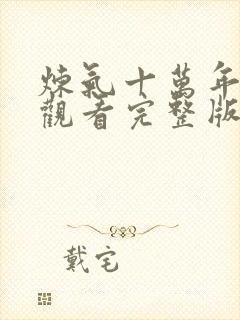 煉氣十萬年
觀看完整版
戴宅